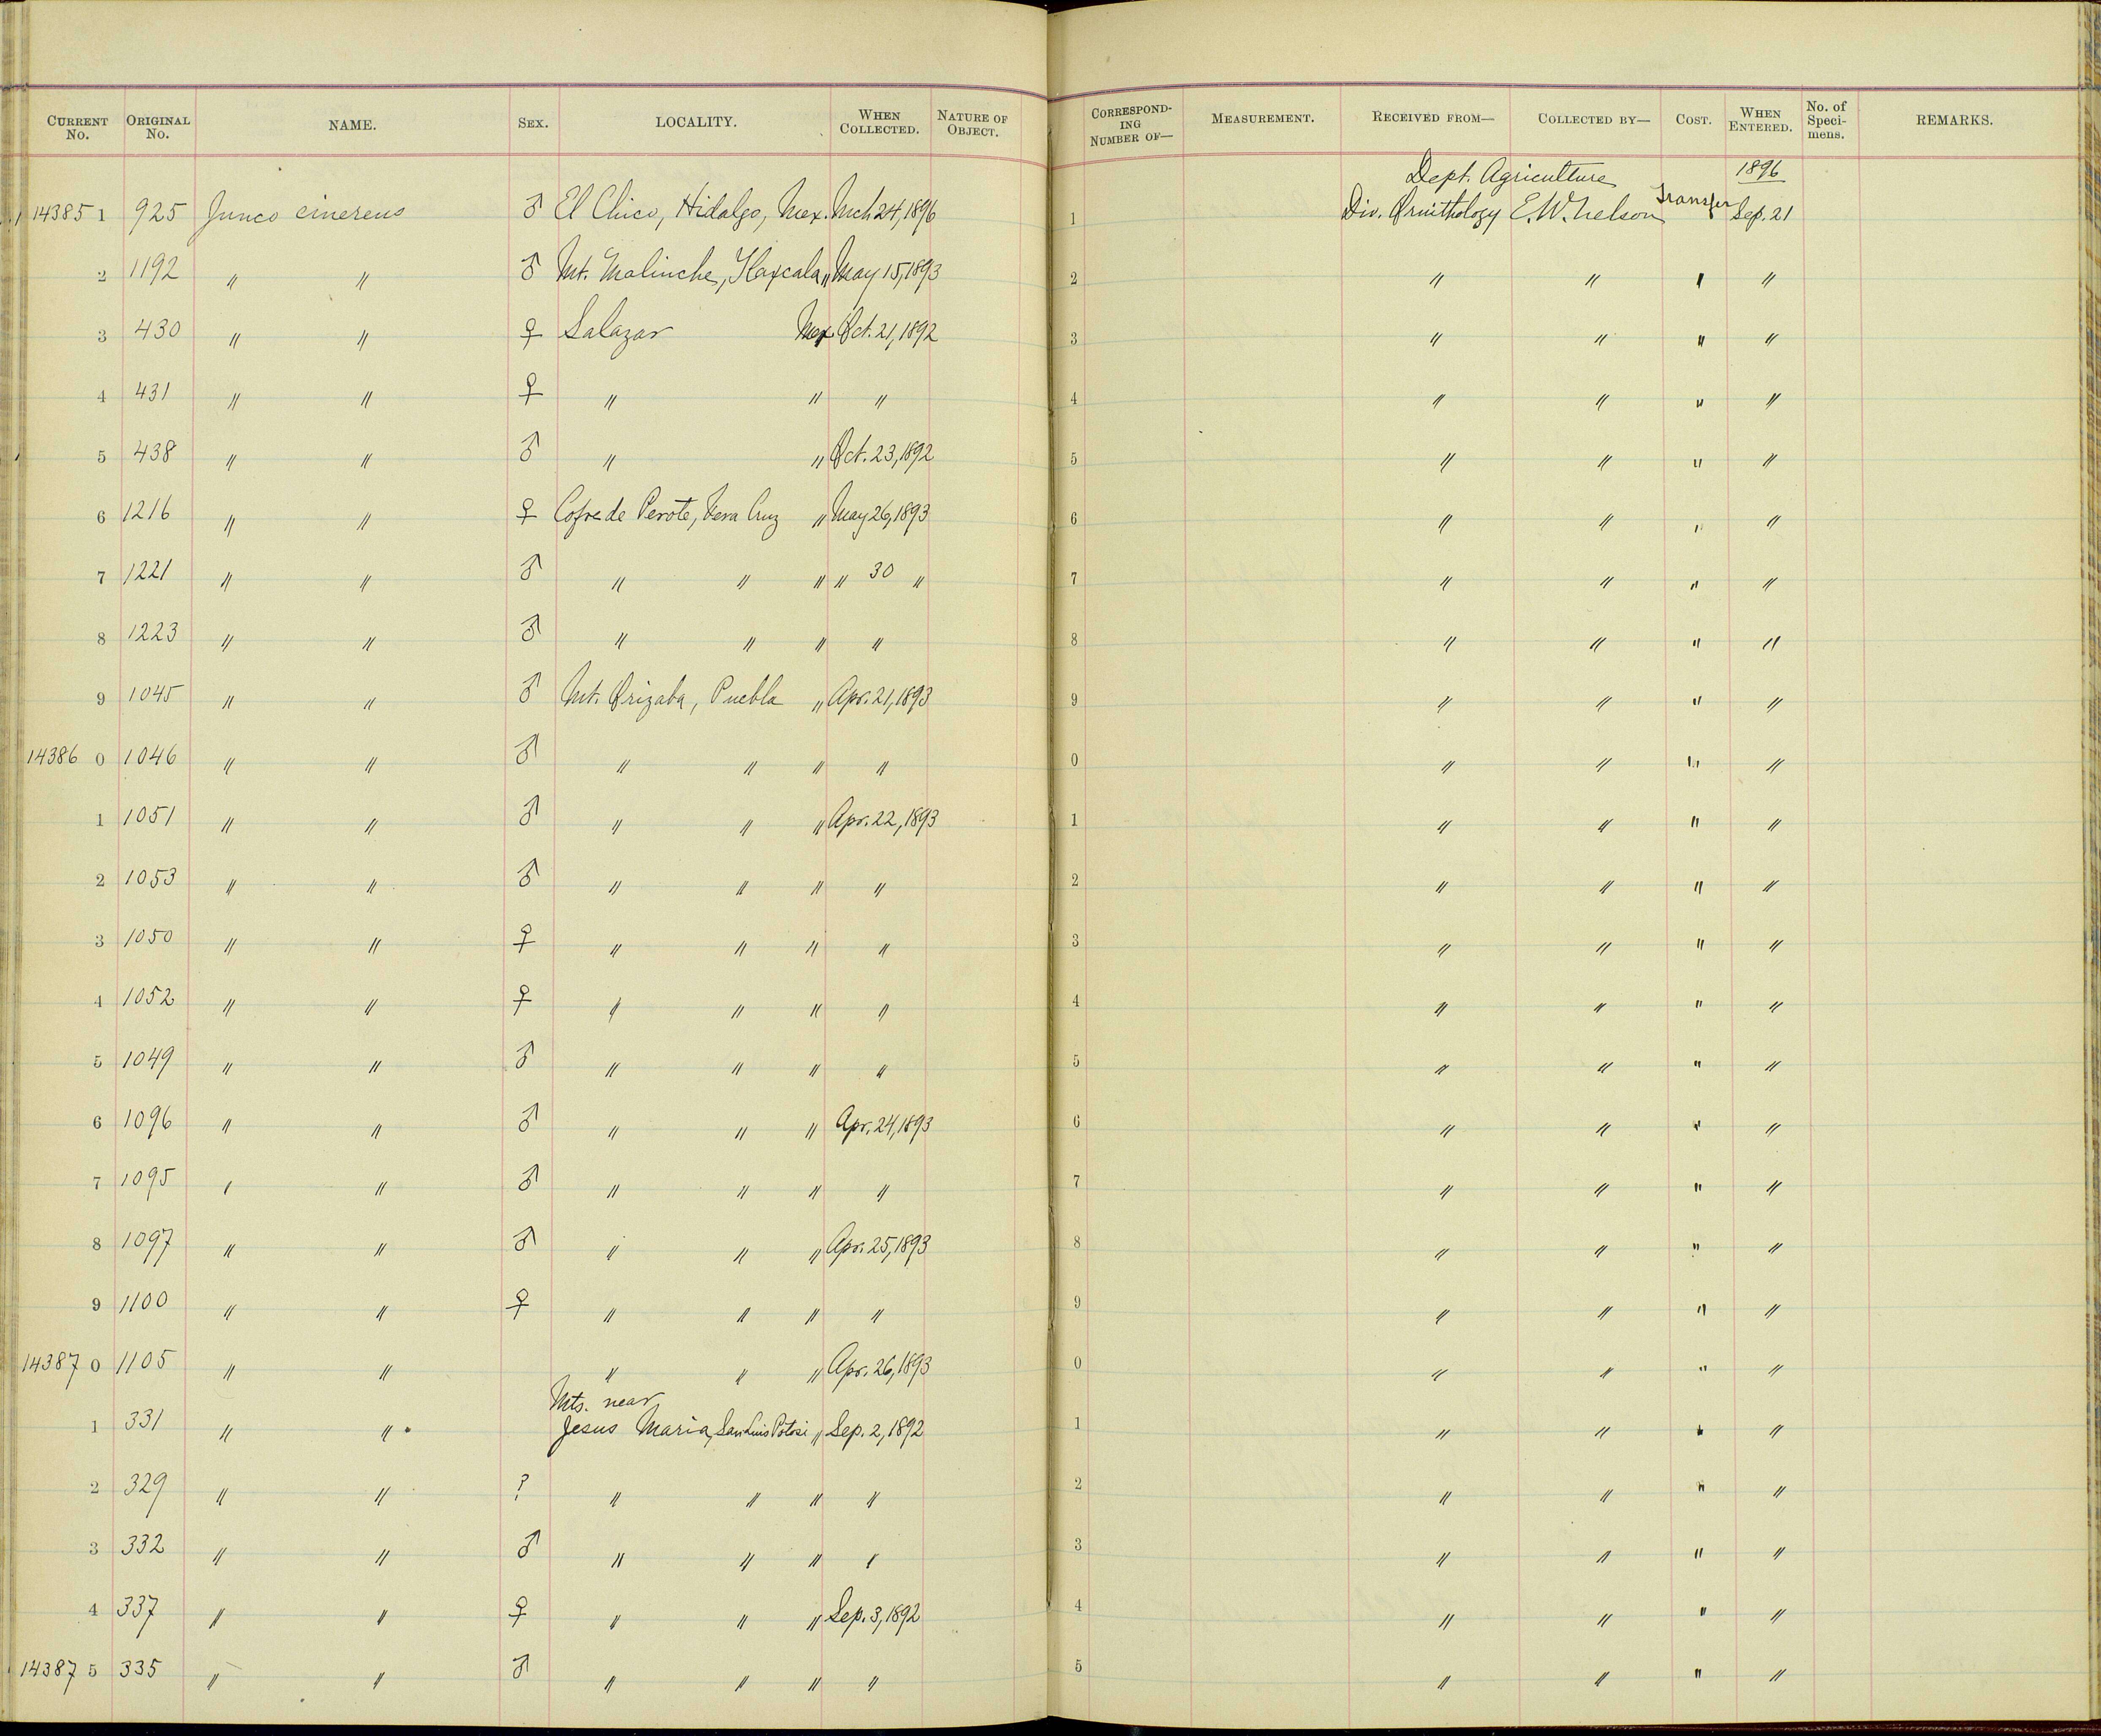 CURRENT No. ORIGINAL No. NAME. SEX. LOCALITY. WHEN COLLECTED. NATURE OF OBJECT. CORRESPONDING NUMBER OF— MEASUREMENT. RECEIVED FROM— COLLECTED BY— COST. WHEN ENTERED. No. of Specimens. REMARKS.
Dept. Agriculture 1896
14385 1 925 Junco cinereus ♂ El Chico, Hidalgo, Mex. Mch 24, 1896 1 Div. Ornithology E.W. Nelson Transfer Sep. 21
2 1192 " " ♂ Mt. Malinche, Tlaxcala " May 15, 1893 2 " " " "
3 430 " " ♀ Salazar Mex. Oct. 21, 1892 3 " " " "
4 431 " " ♀ " " " 4 " " " "
5 438 " " ♂ " " Oct. 23, 1892 5 " " " "
6 1216 " " ♀ Cofre de Perote, Vera Cruz " May 26, 1893 6 " " " "
7 1221 " " ♂ " " " " 30 " 7 " " " "
8 1223 " " ♂ " " " " 8 " " " "
9 1045 " " ♂ Mt. Orizaba, Puebla " Apr. 21, 1893 9 " " " "
14386 0 1046 " " ♂ " " " " 0 " " " "
1 1051 " " ♂ " " " Apr. 22, 1893 1 " " " "
2 1053 " " ♂ " " " " 2 " " " "
3 1050 " " ♀ " " " " 3 " " " "
4 1052 " " ♀ " " " " 4 " " " "
5 1049 " " ♂ " " " " 5 " " " "
6 1096 " " ♂ " " " Apr. 24, 1893 6 " " " "
7 1095 " " ♂ " " " " 7 " " " "
8 1097 " " ♂ " " " Apr. 25, 1893 8 " " " "
9 1100 " " ♀ " " " " 9 " " " "
14387 0 1105 " " " " " Apr. 26, 1893 0 " " " "
Mts. near
1 331 " " Jesus Maria, San Luis Potosi " Sep. 2, 1892 1 " " " "
2 329 " " ? " " " " 2 " " " "
3 332 " " ♂ " " " " 3 " " " "
4 337 " " ♀ " " " Sep. 3, 1892 4 " " " "
14387 5 335 " " ♂ " " " " 5 " " " "